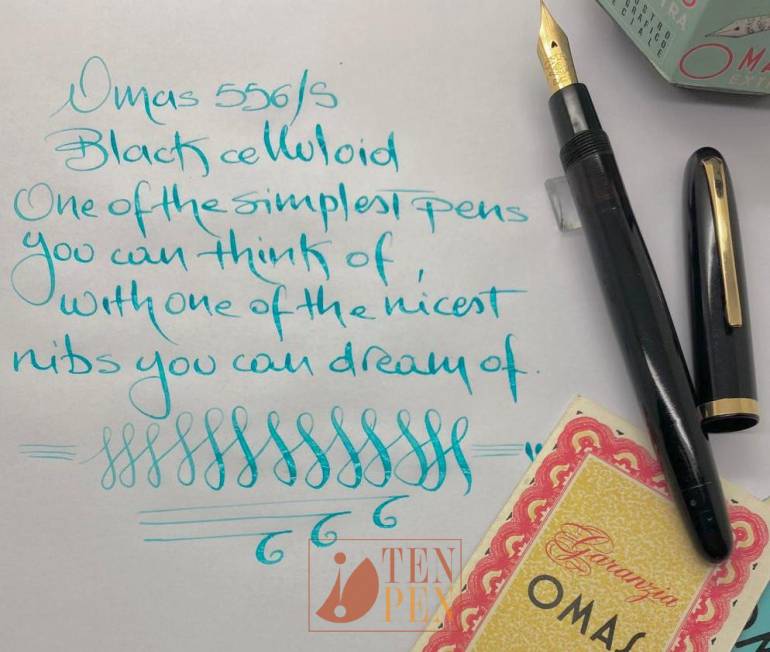 Omas 556/S
Black celluloid
One of the simplest pens
you can think of,
with one of the nicest
nibs you can dream of.
TEN
PEN
Garanzia
OMAS
OMA
EXT
TRA